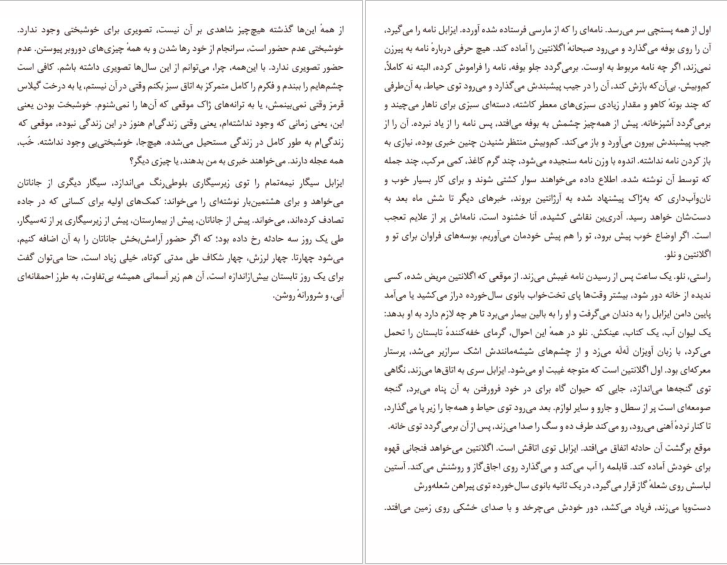 اول از همه پستچی سر می‌رسد. نامه‌ای را که از مارسی فرستاده شده آورده. ایزابل نامه را می‌گیرد،
آن را روی بوفه می‌گذارد و می‌رود صبحانهٔ اگلانتین را آماده کند. هیچ حرفی دربارهٔ نامه به پیرزن
نمی‌زند، اگر چه نامه مربوط به اوست. برمی‌گردد جلو بوفه، نامه را فراموش کرده، البته نه کاملاً،
کم‌وبیش. بی‌آن‌که بازش کند، آن را در جیب پیشبندش می‌گذارد و می‌رود توی حیاط، به آن‌طرفی
که چند بوتهٔ کاهو و مقدار زیادی سبزی‌های معطر کاشته، دسته‌ای سبزی برای ناهار می‌چیند و
برمی‌گردد آشپزخانه. پیش از همه‌چیز چشمش به بوفه می‌افتد، پس نامه را از یاد نبرده. آن را از
جیب پیشبندش بیرون می‌آورد و باز می‌کند. کم‌وبیش منتظر شنیدن چنین خبری بوده، نیازی به
باز کردن نامه نداشته. اندوه با وزن نامه سنجیده می‌شود، چند گرم کاغذ، کمی مرکب، چند جمله
که توسط آن نوشته شده. اطلاع داده می‌خواهند سوار کشتی شوند و برای کار بسیار خوب و
نان‌وآب‌داری که به‌ژاک پیشنهاد شده به آرژانتین بروند، خبرهای دیگر تا شش ماه بعد به
دست‌شان خواهد رسید. آدری‌ین نقاشی کشیده، آنا خشنود است، نامه‌اش پر از علایم تعجب
است. اگر اوضاع خوب پیش برود، تو را هم پیش خودمان می‌آوریم، بوسه‌های فراوان برای تو و
اگلانتین و نلو.
راستی، نلو. یک ساعت پس از رسیدن نامه غیبش می‌زند. از موقعی که اگلانتین مریض شده، کسی
ندیده از خانه دور شود، بیشتر وقت‌ها پای تخت‌خواب بانوی سال‌خورده دراز می‌کشید یا می‌آمد
پایین دامن ایزابل را به دندان می‌گرفت و او را به بالین بیمار می‌برد تا هر چه لازم دارد به او بدهد:
یک لیوان آب، یک کتاب، عینکش. نلو در همهٔ این احوال، گرمای خفه‌کنندهٔ تابستان را تحمل
می‌کرد، با زبان آویزان له‌له می‌زد و از چشم‌های شیشه‌مانندش اشک سرازیر می‌شد، پرستار
معرکه‌ای بود. اول اگلانتین است که متوجه غیبت او می‌شود. ایزابل سری به اتاق‌ها می‌زند، نگاهی
توی گنجه‌ها می‌اندازد، جایی که حیوان گاه برای در خود فرورفتن به آن پناه می‌برد، گنجه
صومعه‌ای است پر از سطل و جارو و سایر لوازم. بعد می‌رود توی حیاط و همه‌جا را زیر پا می‌گذارد،
تا کنار نردهٔ آهنی می‌رود، رو می‌کند طرف ده و سگ را صدا می‌زند، پس از آن برمی‌گردد توی خانه.
موقع برگشت آن حادثه اتفاق می‌افتد. ایزابل توی اتاقش است. اگلانتین می‌خواهد فنجانی قهوه
برای خودش آماده کند. قابلمه را آب می‌کند و می‌گذارد روی اجاق‌گاز و روشنش می‌کند. آستین
لباسش روی شعلهٔ گاز قرار می‌گیرد، در یک ثانیه بانوی سال‌خورده توی پیراهن شعله‌ورش
دست‌وپا می‌زند، فریاد می‌کشد، دور خودش می‌چرخد و با صدای خشکی روی زمین می‌افتد.
از همهٔ این‌ها گذشته هیچ‌چیز شاهدی بر آن نیست، تصویری برای خوشبختی وجود ندارد.
خوشبختی عدم حضور است، سرانجام از خود رها شدن و به همهٔ چیزهای دوروبر پیوستن. عدم
حضور تصویری ندارد. با این‌همه، چرا، می‌توانم از این سال‌ها تصویری داشته باشم. کافی است
چشم‌هایم را ببندم و فکرم را کامل متمرکز به اتاق سبز بکنم وقتی در آن نیستم، یا به درخت گیلاس
قرمز وقتی نمی‌بینمش، یا به ترانه‌های ژاک موقعی که آن‌ها را نمی‌شنوم. خوشبخت بودن یعنی
این، یعنی زمانی که وجود نداشته‌ام، یعنی وقتی زندگی‌ام هنوز در این زندگی نبوده، موقعی که
زندگی‌ام به طور کامل در زندگی مستحیل می‌شده. هیچ‌جا، خوشبختی‌یی وجود نداشته، خُب،
همه عجله دارند. می‌خواهند خبری به من بدهند، یا چیزی دیگر؟
ایزابل سیگار نیمه‌تمام را توی زیرسیگاری بلوطی‌رنگ می‌اندازد، سیگار دیگری از جاناتان
می‌خواهد و برای هشتمین‌بار نوشته‌ای را می‌خواند: کمک‌های اولیه برای کسانی که در جاده
تصادف کرده‌اند، می‌خواند. پیش از جاناتان، پیش از بیمارستان، پیش از زیرسیگاری پر از ته‌سیگار،
طی یک روز سه حادثه رخ داده بود؛ که اگر حضور آرامش‌بخش جاناتان را به آن اضافه کنیم،
می‌شود چهارتا. چهار لرزش، چهار شکاف طی مدتی کوتاه، خیلی زیاد است، حتا می‌توان گفت
برای یک روز تابستان بیش‌ازاندازه است، آن هم زیر آسمانی همیشه بی‌تفاوت، به طرز احمقانه‌ای
آبی، و شرورانهٔ روشن.